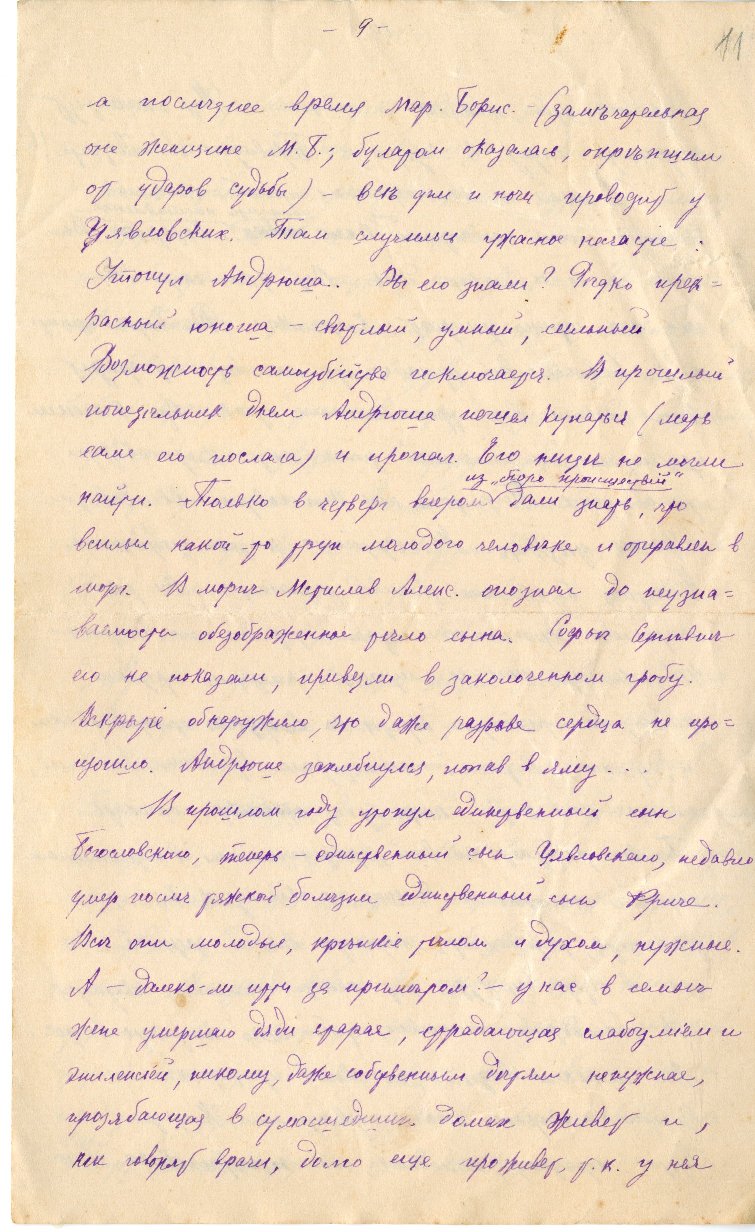 - 9 -
11
а послѣднее время Мар. Борис. - (замѣчательная
она женщина М.Б.; булатом оказалась, окрѣпшим
от ударов судьбы) - всѣ дни и ночи проводит у
Цявловских. Там случилось ужасное несчастіе:
Утонул Андрюша.. Вы его знали? Рѣдко прек=
расный юноша - свѣтлый, умный, сильный
Возможность самоубійства исключается. В прошлый
понедѣльник днем Андрюша пошел купаться (мать
сама его послала) и пропал. Его нигдѣ не могли
из „бюро происшествій"
найти. Только в четверг вечером дали знать, что
всплыл какой-то труп молодого человѣка и отправлен в
морг. В моргѣ Мстислав Алекс. опознал до неузна=
ваемости обезображенное тѣло сына. Софьѣ Сергѣевнѣ
его не показали, привезли в заколоченном гробу.
Вскрытіе обнаружило, что даже разрыва сердца не про=
изошло. Андрюша захлебнулся, попав в яму...
В прошлом году утонул единственный сын
Богословского, теперь - единственный сын Цявловского, недавно
умер послѣ тяжкой болѣзни единственный сын Фриче.
Всѣ они молодые, крѣпкіе тѣлом и духом, нужные.
А - далеко-ли идти за примѣром? - у нас в семьѣ
жена умершаго дяди старая, страдающая слабоуміем и
эпилепсіей, никому, даже собственным дѣтям ненужная,
прозябающая в сумасшедших домах живет и,
как говорят врачи, долго еще проживет, т.к. у нея